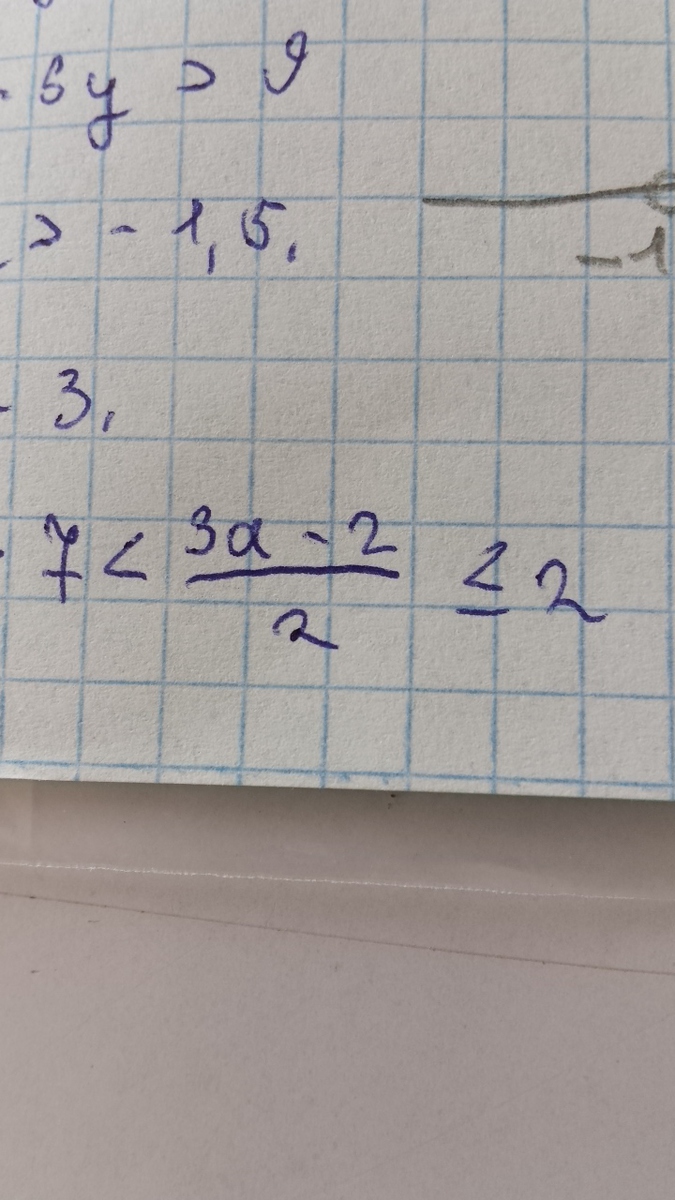 - 6y > 9
> - 1,5.
-1
- 3,
- 7 < \frac{3a - 2}{2} ≤ 2